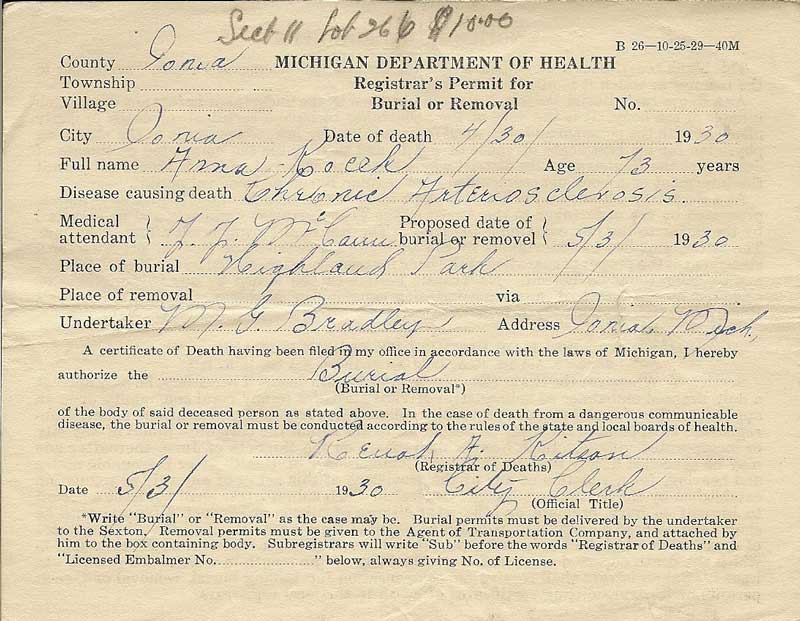 Sect 11 Lot 266 $10.00
B 26—10-25-29—40M
County Ionia MICHIGAN DEPARTMENT OF HEALTH
Township Registrar's Permit for
Village Burial or Removal No.
City Ionia Date of death 4/30/ 1930
Full name Anna Kocek Age 73 years
Disease causing death Chronic Arteriosclerosis.
Medical attendant J. J. McCann Proposed date of burial or removel 5/3/ 1930
Place of burial Highland Park
Place of removal via
Undertaker M. G. Bradley Address Ionia Mich,
A certificate of Death having been filed in my office in accordance with the laws of Michigan, I hereby
authorize the Burial
(Burial or Removal*)
of the body of said deceased person as stated above. In the case of death from a dangerous communicable
disease, the burial or removal must be conducted according to the rules of the state and local boards of health.
A. Kitson
(Registrar of Deaths)
Date 5/3/ 1930 City Clerk
(Official Title)
*Write "Burial" or "Removal" as the case may be. Burial permits must be delivered by the undertaker
to the Sexton. Removal permits must be given to the Agent of Transportation Company, and attached by
him to the box containing body. Subregistrars will write "Sub" before the words "Registrar of Deaths" and
"Licensed Embalmer No. " below, always giving No. of License.